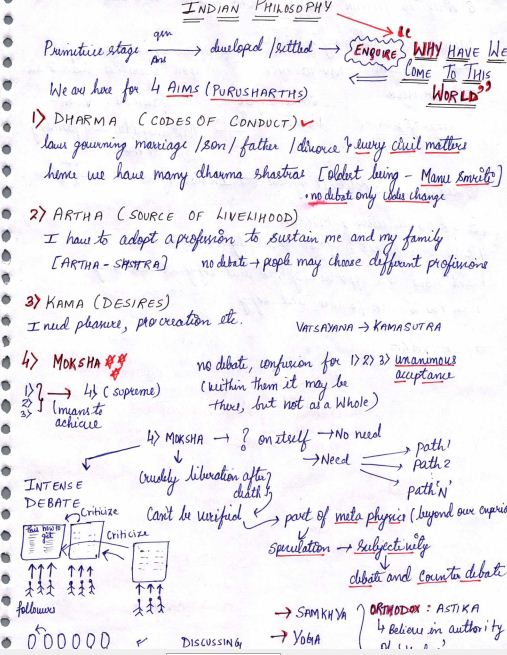 INDIAN PHILOSOPHY
Primitive stage → developed / settled → ENQUIRE "WHY HAVE WE
qen
Ans
COME TO THIS
WORLD"
We are here for 4 AIMS (PURUSHARTHS)
1) DHARMA (CODES OF CONDUCT) ✓
laws governing marriage / son / father / divorce } every civil matters
hence we have many dharma shastras [oldest being - Manu Smriti]
• no debate only codes change
2) ARTHA (SOURCE OF LIVELIHOOD)
I have to adopt a profession to sustain me and my family
[ARTHA - SHASTRA] no debate → people may choose different professions
3) KAMA (DESIRES)
I need pleasure, procreation etc. VATSAYANA → KAMASUTRA
4) MOKSHA no debate, confusion for 1) 2) 3) unanimous
acceptance
1) 2) 3) } → 4) (supreme) (within them it may be
(means to there, but not as a whole)
achieve
4) MOKSHA → ? on itself → No need
→ Need → path 1
Path 2
path 'N'
INTENSE
DEBATE
Crudely liberation after
death!
Can't be verified → part of meta physics (beyond our
Speculation → Subjectivity
debate and counter debate
Criticize
this how to
get
Criticize
followers
DISCUSSING
→ SAMKHYA
→ YOGA
ORTHODOX : ASTIKA
↳ Believe in authority